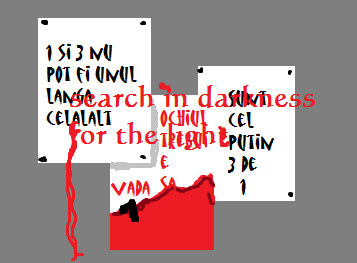 1 Si 3 NU
POT Fi UNUL
LANGA
CELALALT
search in darkness
for the light
OCHIUL
TREBUI
E
SA
VADA
SUNT
CEL
PUTIN
3 DE
1